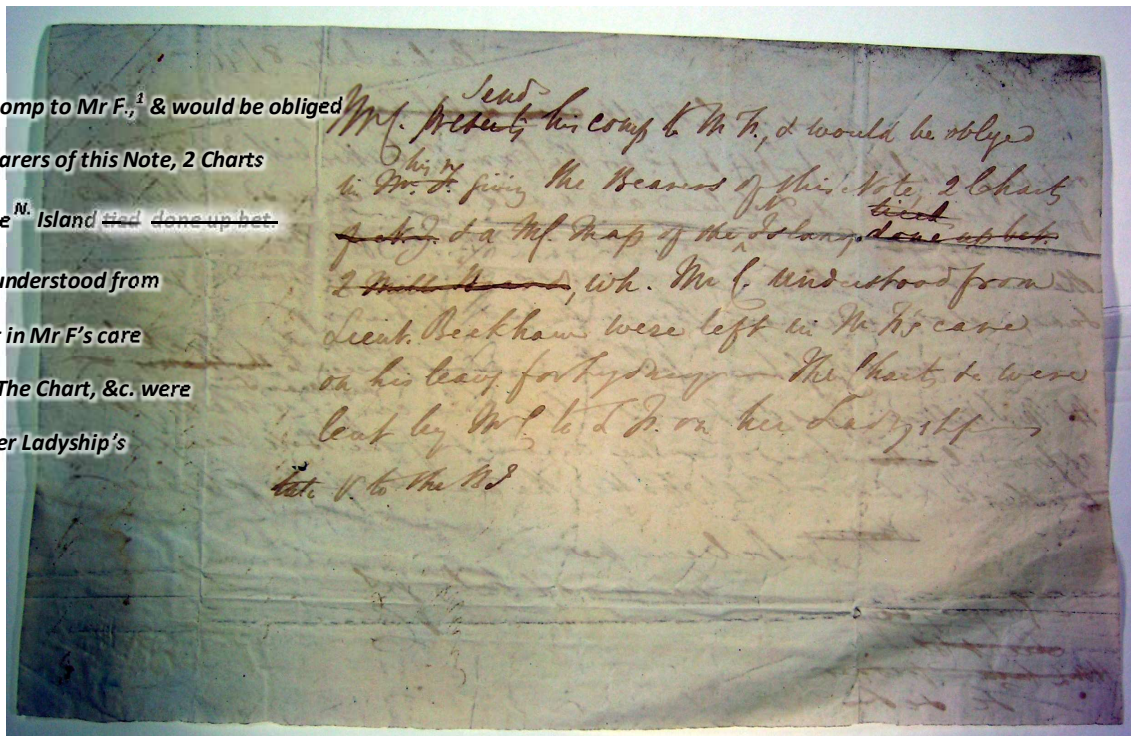 omp to Mr F.,¹ & would be obliged
arers of this Note, 2 Charts
e N. Island tied done up bet.
understood from
in Mr F's care
The Chart, &c. were
er Ladyship's
Send
Mr C. presents his comp to Mr F., & would be obliged
his
in Mr. F. giving the Bearers of this Note, 2 Charts
N tied
& a Ms. Map of the Island done up bet.
2 Mill Boards, wh. Mr C. understood from
Lieut. Beckham were left in Mr F's care
on his leavg for Sydney The Chart, &c were
lent by Mr C to L F. on her Ladyship
late V. to the N I